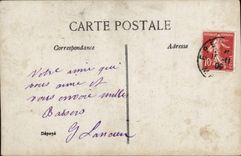 CARTE POSTALE
Correspondance
Adresse
Votre amie qui
vous aime et
vous envoie mille
Baisers
G
Déposé
10